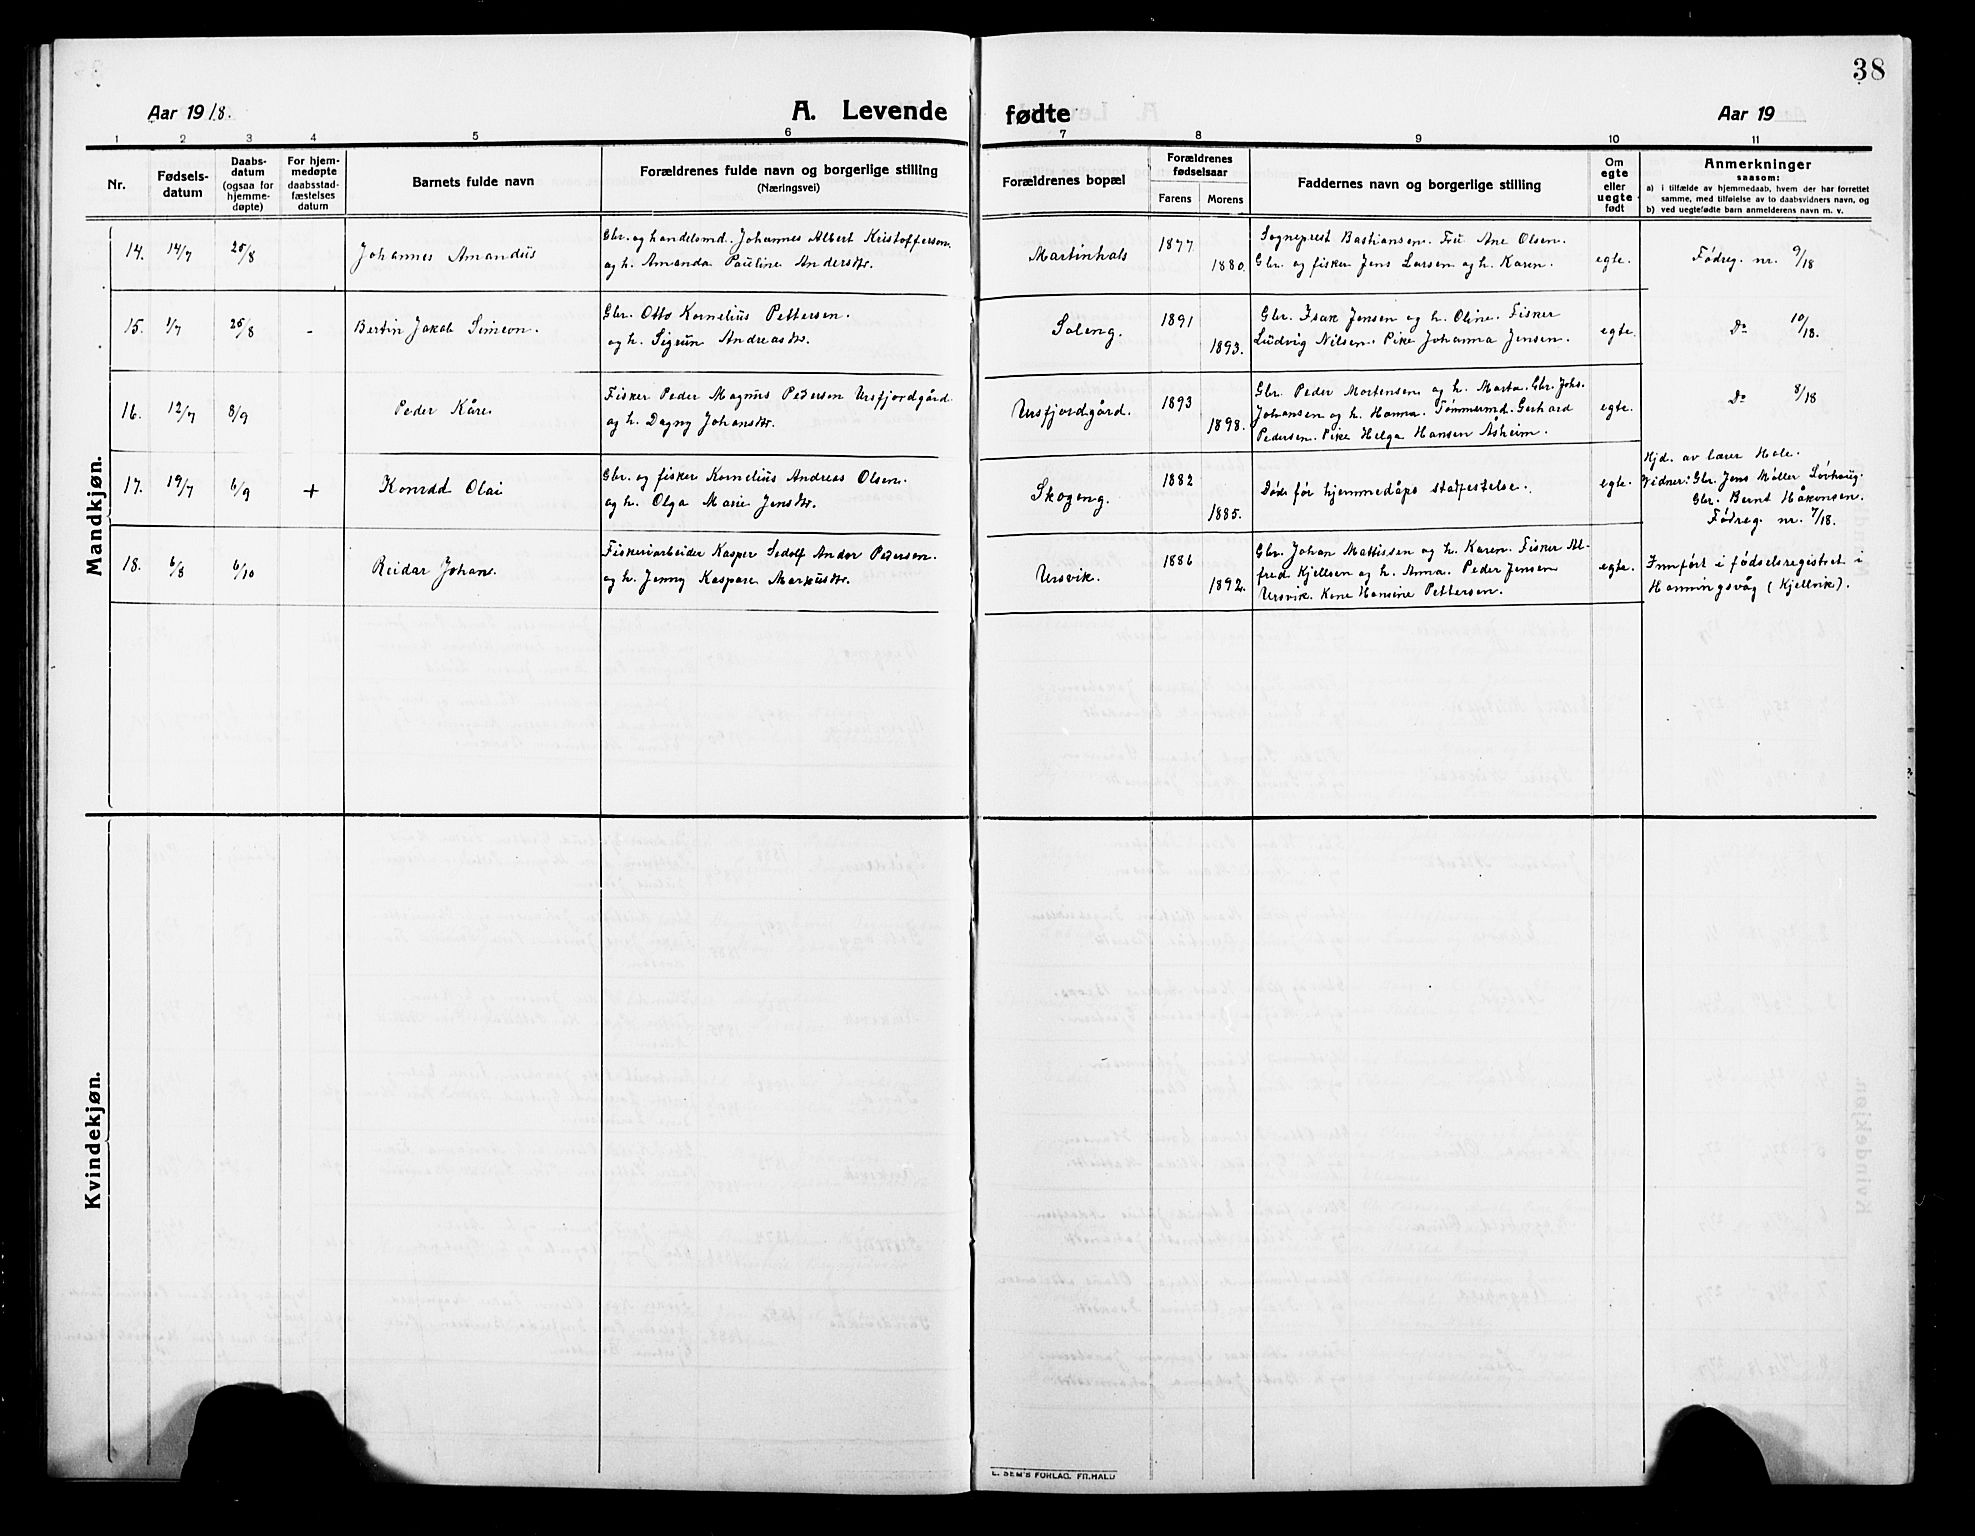 38
Aar 1918.
A. Levende
fødte
Aar 19
1 2 3 4 5 6 7 8 9 10 11
Nr.
Fødsels-
datum
Daabs-
datum
(ogsaa for
hjemme-
døpte)
For hjem-
medøpte
daabsstad-
fæstelses
datum
Barnets fulde navn
Forældrenes fulde navn og borgerlige stilling
(Næringsvei)
Forældrenes bopæl
Forældrenes
fødselsaar
Farens
Morens
Faddernes navn og borgerlige stilling
Om
egte
eller
uegte
født
Anmerkninger
saasom:
a) i tilfælde av hjemmedaab, hvem der har forrettet
samme, med tilføielse av to daabsvidners navn, og
b) ved uegtefødte barn anmelderens navn m. v.
Mandkjøn.
14. 14/7 25/8 Johannes Amandus
Gbr. og handelsmd. Johannes Albert Kristoffersen
og h. Amanda Pauline Andersdtr.
Martinhals 1877 1880.
Sogneprest Bastiansen. Fru Ane Olsen.
Gbr. og fisker Jens Larsen og h. Karen.
egte. Fødreg. nr. 9/18
15. 1/7 25/8 - Bertin Jakob Simeon.
Gbr. Otto Kornelius Pettersen.
og h. Sigrun Andreasdtr.
Soleng. 1891 1893.
Gbr. Isak Jensen og h. Oline. Fisker
Ludvig Nilsen. Pike Johanna Jensen.
egte. Do 10/18.
16. 12/7 8/9 Peder Kåre
Fisker Peder Magnus Pedersen Ursfjordgård
og h. Dagny Johansdtr.
Ursfjordgård. 1893 1898.
Gbr. Peder Mortensen og h. Marta. Gbr. Johs.
Johansen og h. Hanna. Tømmermd. Gerhard
Pedersen. Pike Helga Hansen Åsheim.
egte. Do 8/18
17. 19/7 6/9 + Konrad Olai
Gbr. og fisker Kornelius Andreas Olsen
og h. Olga Marie Jensdtr.
Skogeng. 1882 1885.
Døde før hjemmedåps stadfestelse.
egte.
Hjd. av lærer Hole.
Vidner: Gbr. Jens Møller Løvhaug
Gbr. Bernt Håkonsen.
Fødreg. nr. 7/18.
18. 6/8 6/10 Reidar Johan
Fiskeriarbeider Kasper Sedolf Andor Pedersen.
og h. Jenny Kaspare Markusdtr.
Ursvik. 1886 1892.
Gbr. Johan Mattissen og h. Karen. Fisker Al-
fred Kjellsen og h. Anna. Peder Jensen
Ursvik. Kene Hansine Pettersen.
egte.
Innført i fødselsregistret i
Honningsvåg (Kjelvik).
Kvindekjøn.
E. SEM'S FORLAG. FR.HALD